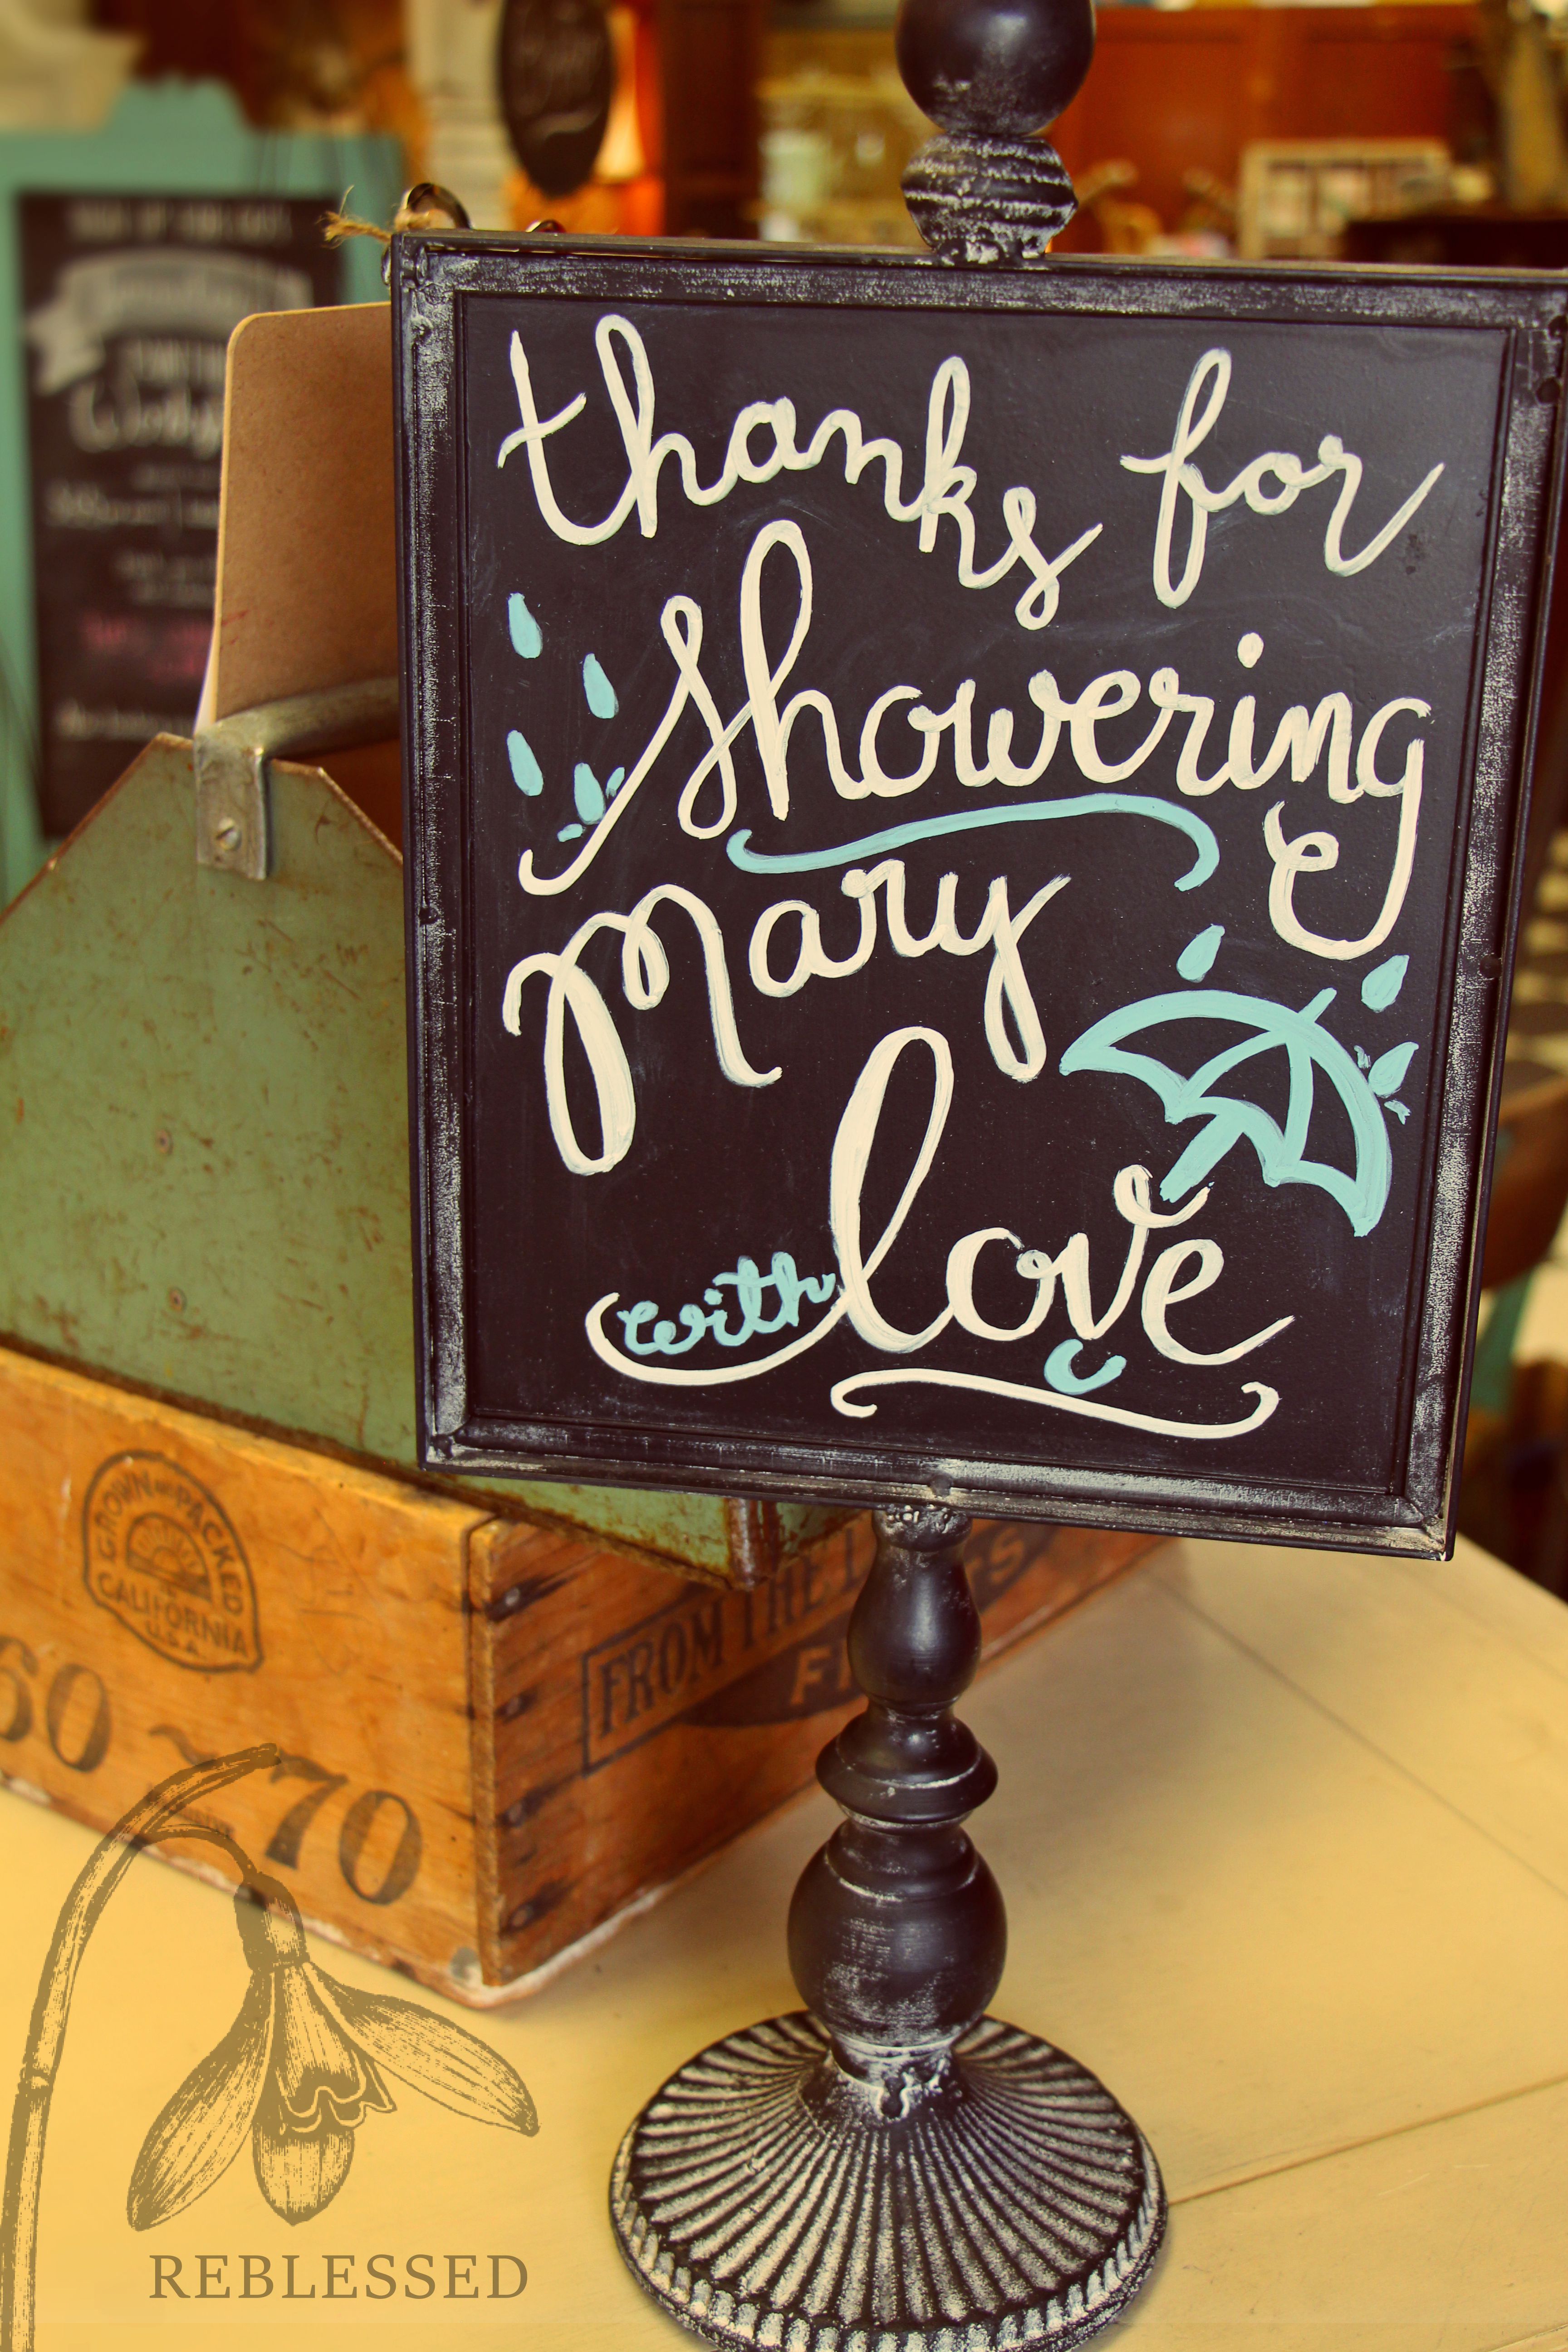 thanks for
showering
Mary
with love
GROWN AND PACKED
IN
CALIFORNIA
U.S.A.
60 ~ 70
FROM THE
REBLESSED